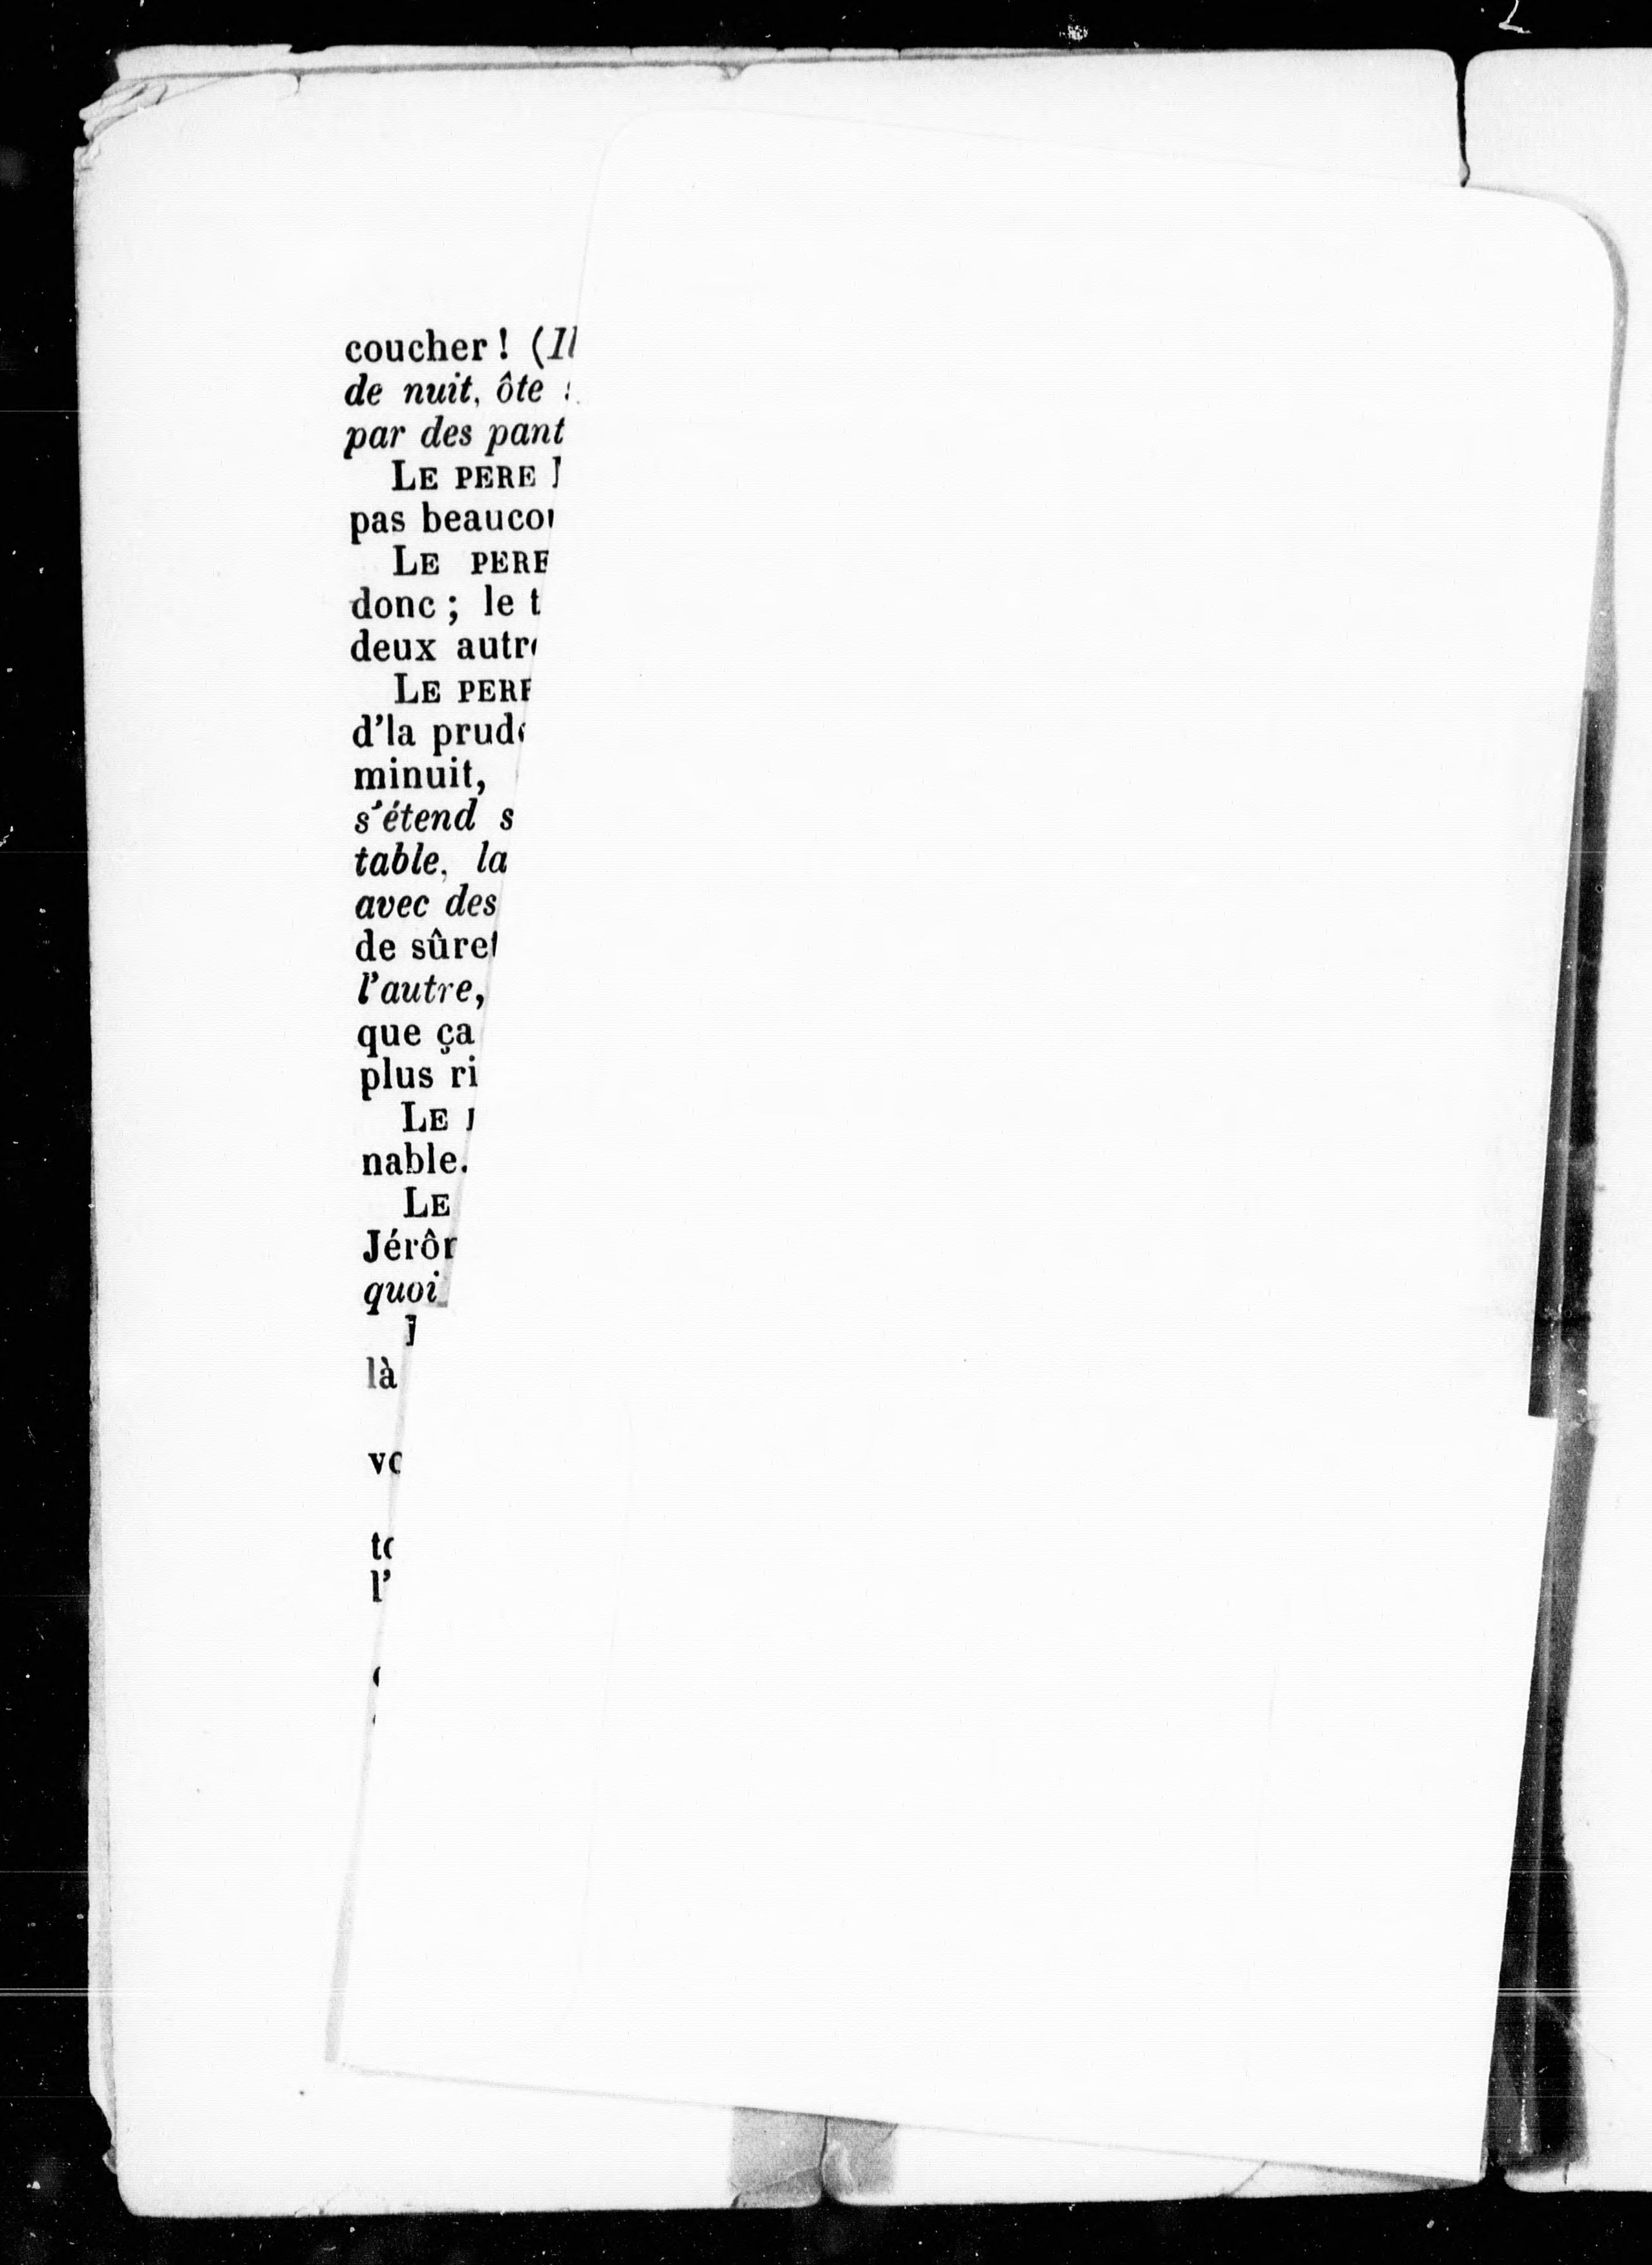 coucher ! (Il
de nuit, ôte
par des pant
LE PERE
pas beaucou
LE PERE
donc ; le t
deux autre
LE PERE
d'la prude
minuit,
s'étend s
table, la
avec des
de sûret
l'autre,
que ça
plus ri
LE
nable.
LE
Jérôm
quoi
là
vo
to
l'